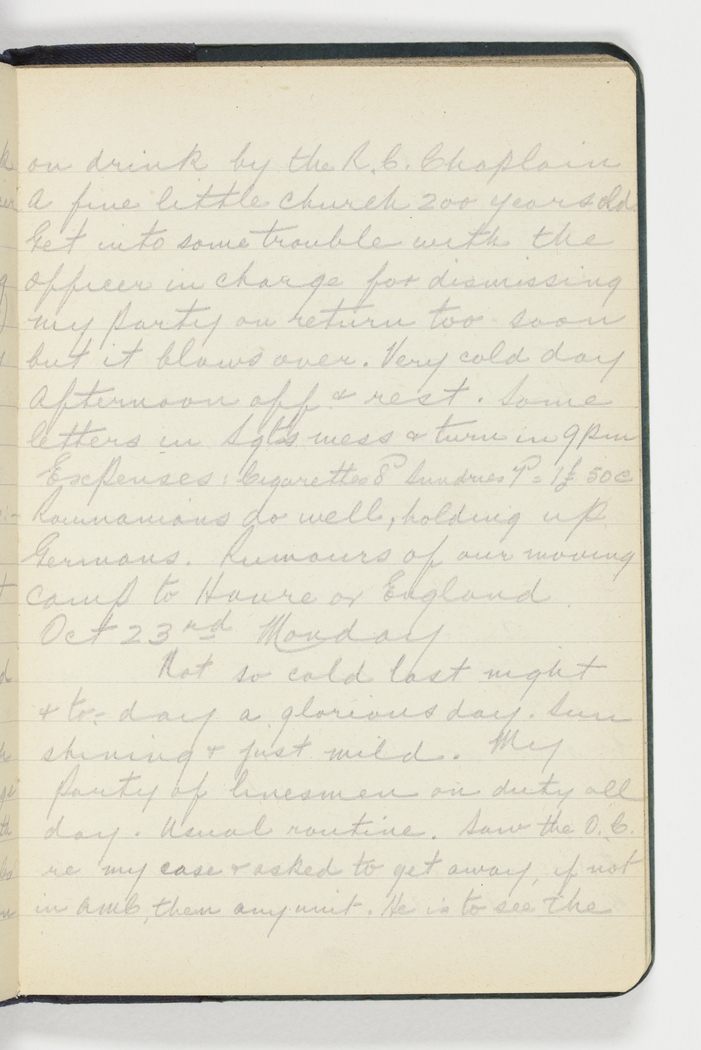 on drink by the R.C. Chaplain
A fine little church 200 years old
Get into some trouble with the
officer in charge for dismissing
my party on return too soon
but it blows over. Very cold day
Afternoon off & rest. Some
letters in Sgts mess & turn in 9pm
Expenses: Cigarettes 8 Sundries = 1f 50c
Roumanians do well, holding up
Germans. Rumours of our moving
camp to Havre or England
Oct 23rd Monday
Not so cold last night
& to-day a glorious day. Sun
shining & just mild. My
party of linesmen on duty all
day. Usual routine. Saw the O.C.
re my case & asked to get away, if not
in AMC, then any unit. He is to see the